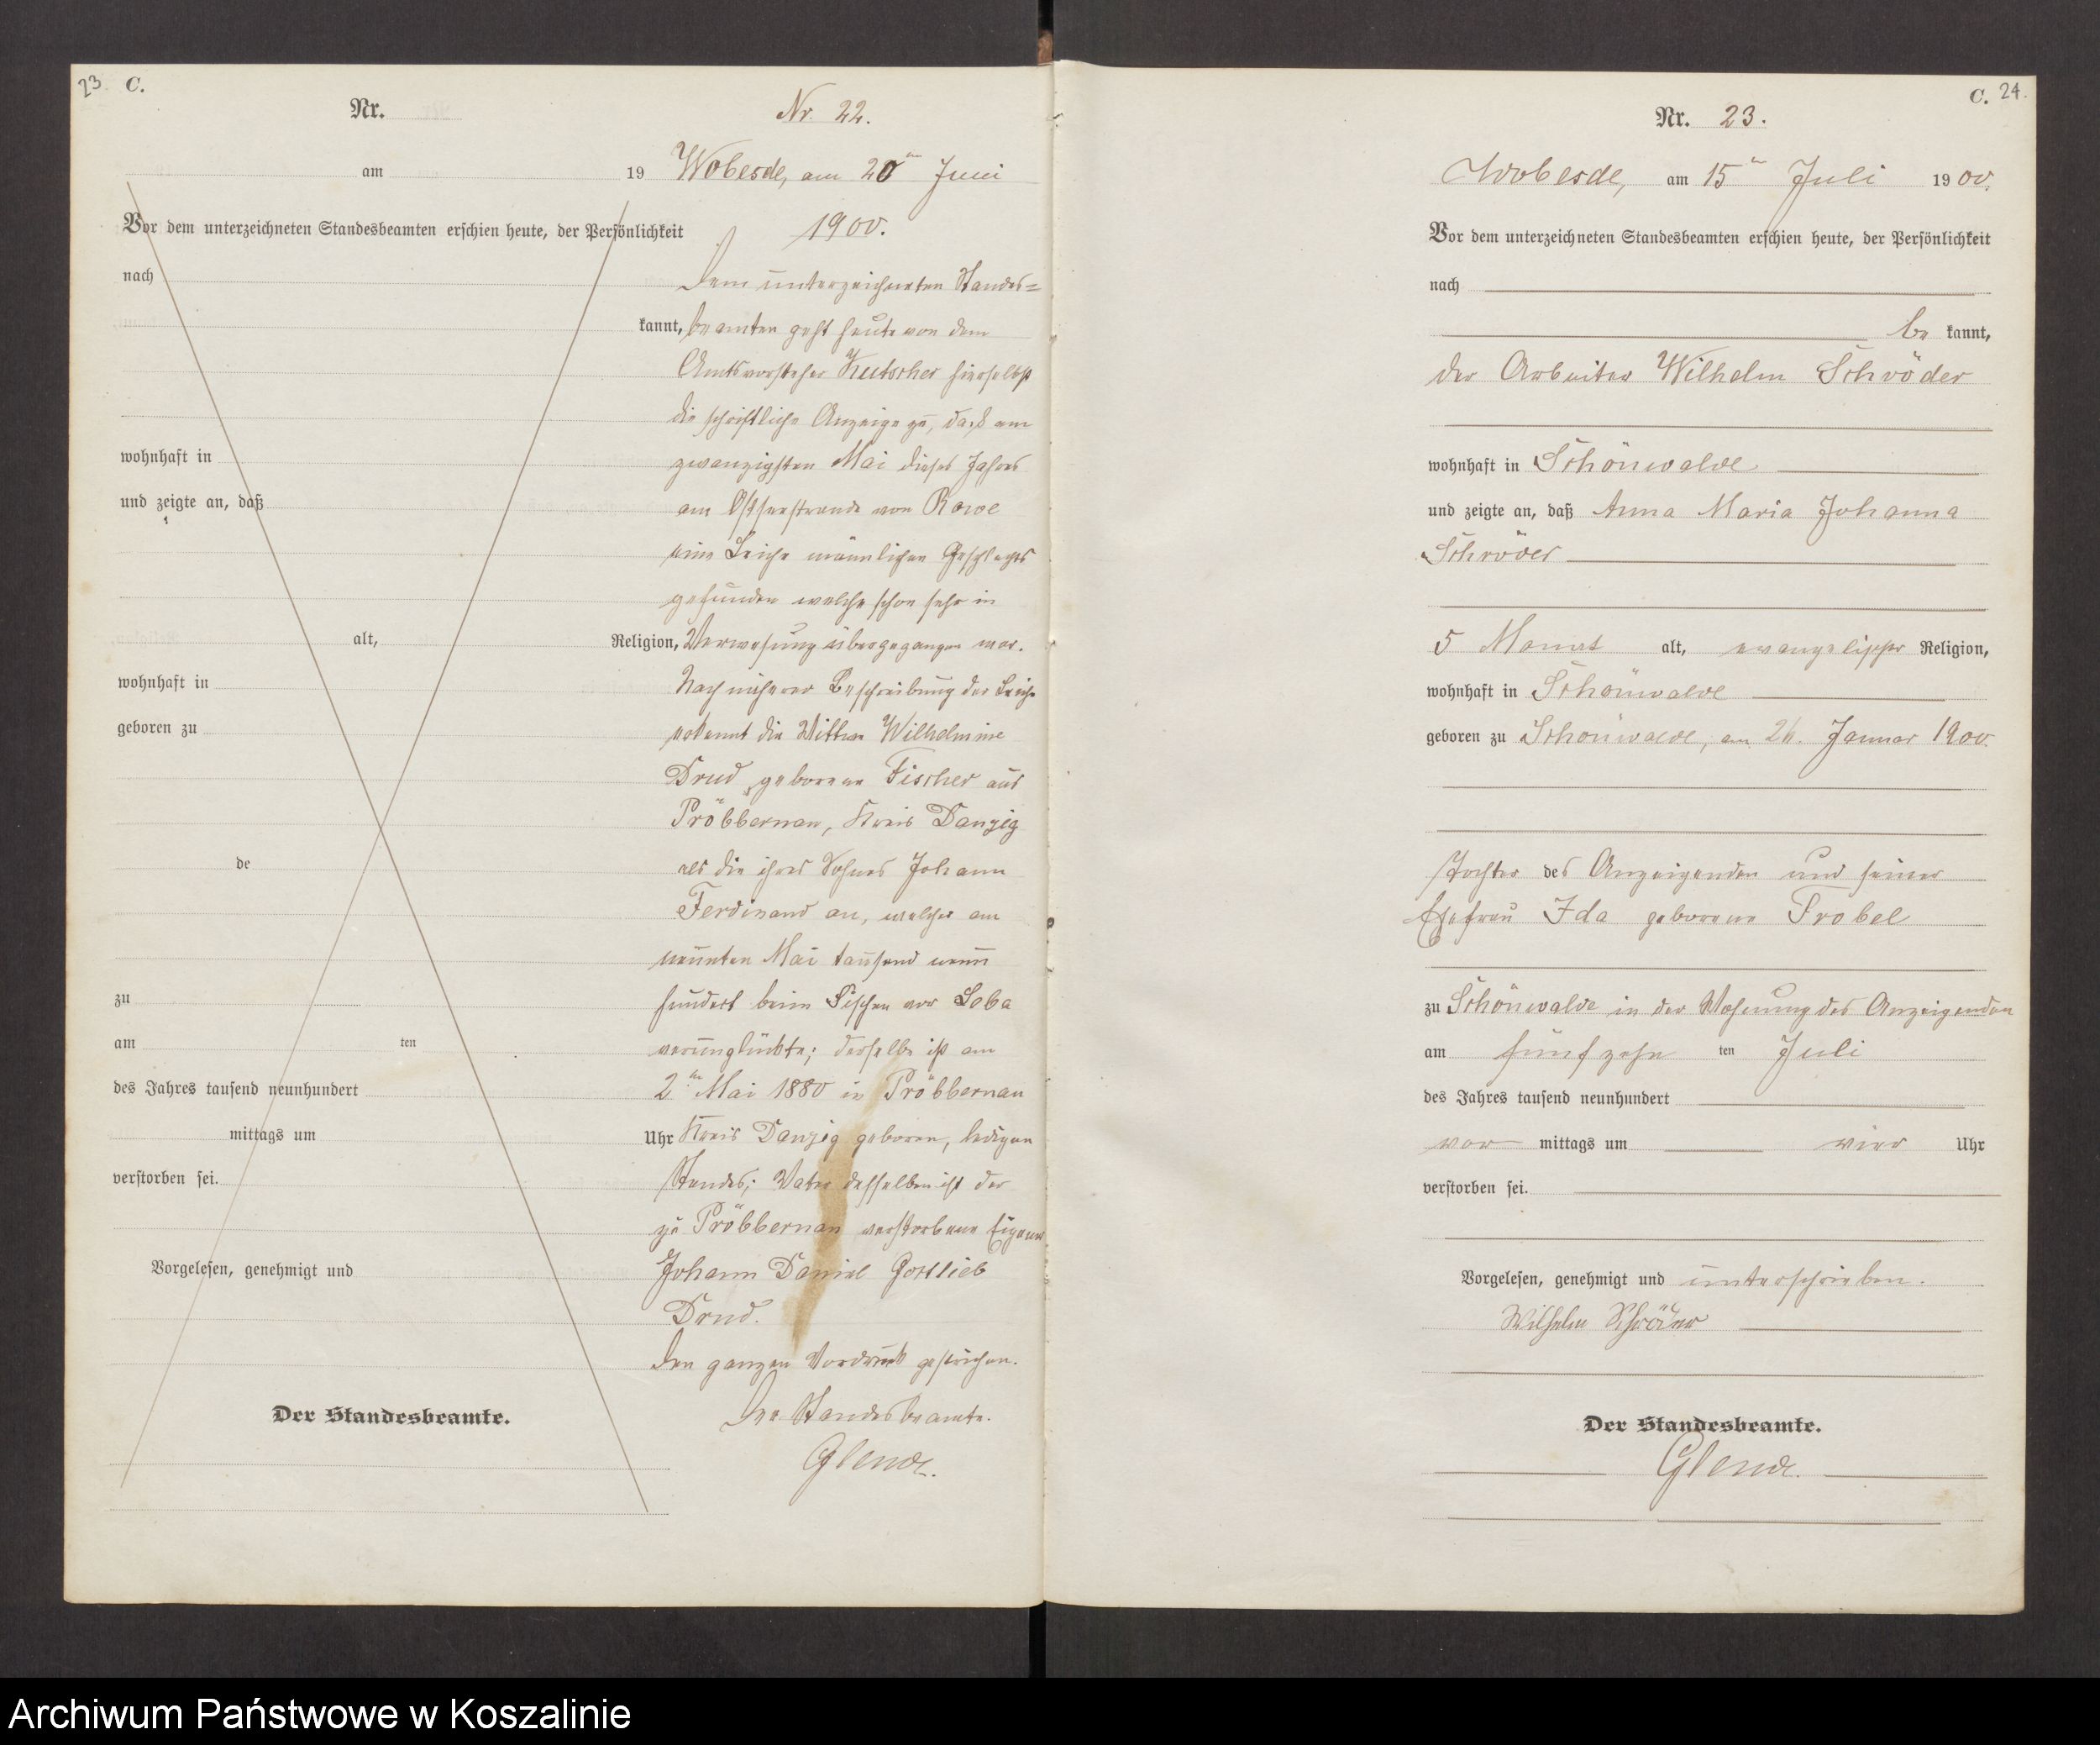 23. C.
Nr.
am 19
Vor dem unterzeichneten Standesbeamten erschien heute, der Persönlichkeit
nach
kannt,
wohnhaft in
und zeigte an, daß
alt, Religion,
wohnhaft in
geboren zu
de
zu
am ten
des Jahres tausend neunhundert
mittags um Uhr
verstorben sei.
Vorgelesen, genehmigt und
Der Standesbeamte.
Nr. 22.
Wobesde, am 20ten Juni
1900.
Dem unterzeichneten Standes=
beamten geht heute von dem
Amtsvorsteher Kutscher hierselbst
die schriftliche Anzeige zu, daß am
zwanzigsten Mai dieses Jahres
am Ostseestrande von Rowe
eine Leiche männlichen Geschlechts
gefunden welche schon sehr in
Verwesung übergegangen war.
Nach näherer Beschreibung der Leiche
erkennt die Wittwe Wilhelmine
Drud geborene Fischer aus
Pröbbernau, Kreis Danzig
als die ihres Sohnes Johann
Ferdinand an, welcher am
neunten Mai tausend neun
hundert beim Fischen vor Leba
verunglückte; derselbe ist am
2ten Mai 1880 in Pröbbernau
Kreis Danzig geboren, ledigen
Standes; Vater desselben ist der
zu Pröbbernau verstorbene Eigner
Johann Daniel Gottlieb
Drud.
Den ganzen Vordruck gestrichen.
Der Standesbeamte.
Glende.
C. 24.
Nr. 23.
Wobesde, am 15ten Juli 1900.
Vor dem unterzeichneten Standesbeamten erschien heute, der Persönlichkeit
nach
be kannt,
der Arbeiter Wilhelm Schröder
wohnhaft in Schönwalde
und zeigte an, daß Anna Maria Johanna
Schröder
5 Monat alt, evangelischer Religion,
wohnhaft in Schönwalde
geboren zu Schönwalde, am Januar 1900.
Tochter des Anzeigenden und seiner
Ehefrau Ida geborene Frobel
zu Schönwalde in der Wohnung des Anzeigenden
am fünfzehn ten Juli
des Jahres tausend neunhundert
vor mittags um vier Uhr
verstorben sei.
Vorgelesen, genehmigt und unterschrieben.
Wilhelm Schröder
Der Standesbeamte.
Glende.
Archiwum Państwowe w Koszalinie